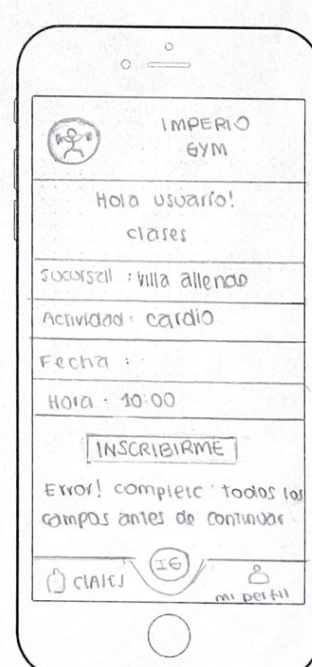 IMPERIO
GYM
Hola usuario!
clases
Sucursal : Villa allende
Actividad: cardio
Fecha :
Hora : 10:00
INSCRIBIRME
Error! complete todos los
campos antes de continuar
CLASES
IG
mi perfil